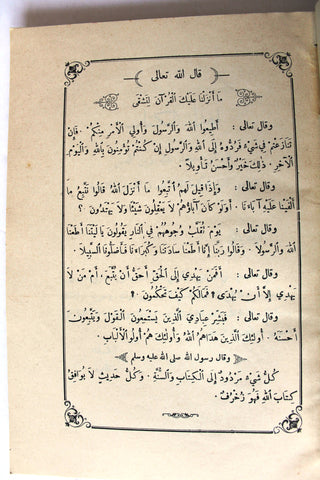 قال الله تعالى
مَا أَنْزَلْنَا عَلَيْكَ الْقُرْآنَ لِتَشْقَى
وقال تعالى : أَطِيعُوا اللهَ وَالرَّسُولَ وَأُولِي الْأَمْرِ مِنْكُمْ . فَإِنْ
تَنَازَعْتُمْ فِي شَيْءٍ فَرُدُّوهُ إِلَى اللهِ وَالرَّسُولِ إِنْ كُنْتُمْ تُؤْمِنُونَ بِاللهِ وَالْيَوْمِ
الْآخِرِ . ذٰلِكَ خَيْرٌ وَأَحْسَنُ تَأْوِيلاً .
وقال تعالى : وَإِذَا قِيلَ لَهُمُ أتَّبِعُوا مَا أَنْزَلَ اللهُ قَالُوا نَتَّبِعُ مَا
أَلْفَيْنَا عَلَيْهِ آبَاءَنَا . أَوَلَوْ كَانَ آبَاؤُهُمْ لَا يَعْقِلُونَ شَيْئًا وَلَا يَهْتَدُونَ ؟
وقال تعالى : يَوْمَ تُقَلَّبُ وُجُوهُهُمْ فِي النَّارِ يَقُولُونَ يَا لَيْتَنَا أَطَعْنَا
اللهَ وَالرَّسُولَا . وَقَالُوا رَبَّنَا إِنَّا أَطَعْنَا سَادَتَنَا وَكُبَرَاءَنَا فَأَضَلُّونَا السَّبِيلَا .
وقال تعالى : أَفَمَنْ يَهْدِي إِلَى الْحَقِّ أَحَقُّ أَنْ يُتَّبَعَ . أَمْ مَنْ لَا
يَهِدِّي إِلَّا أَنْ يُهْدَى ؟ فَمَا لَكُمْ كَيْفَ تَحْكُمُونَ ؟
وقال تعالى : فَبَشِّرْ عِبَادِيَ الَّذِينَ يَسْتَمِعُونَ الْقَوْلَ وَيَتَّبِعُونَ
أَحْسَنَهُ . أُولَئِكَ الَّذِينَ هَدَاهُمُ اللهُ وَأُولَئِكَ هُمْ أُولُو الْأَلْبَابِ .
وقال رسول الله صلى الله عليه وسلم
كُلُّ شَيْءٍ مَرْدُودٌ إِلَى الْكِتَابِ وَالسُّنَّةِ . وَكُلُّ حَدِيثٍ لَا يُوَافِقُ
كِتَابَ اللهِ فَهُوَ زُخْرُفٌ .